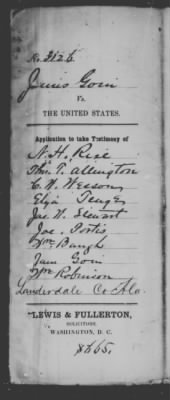 No. 3126
Junius Goin
Vs.
THE UNITED STATES.
Application to take Testimony of
N. H. Rice
Thos. T. Allington
C. W. Weeson
Eliza Teague
Jas. W. Stewart
Joe. Fortis
Wm Baugh
Jane Goin
Wm Robinson
Lauderdale Co Ala.
LEWIS & FULLERTON,
SOLICITORS,
WASHINGTON, D. C.
8665.